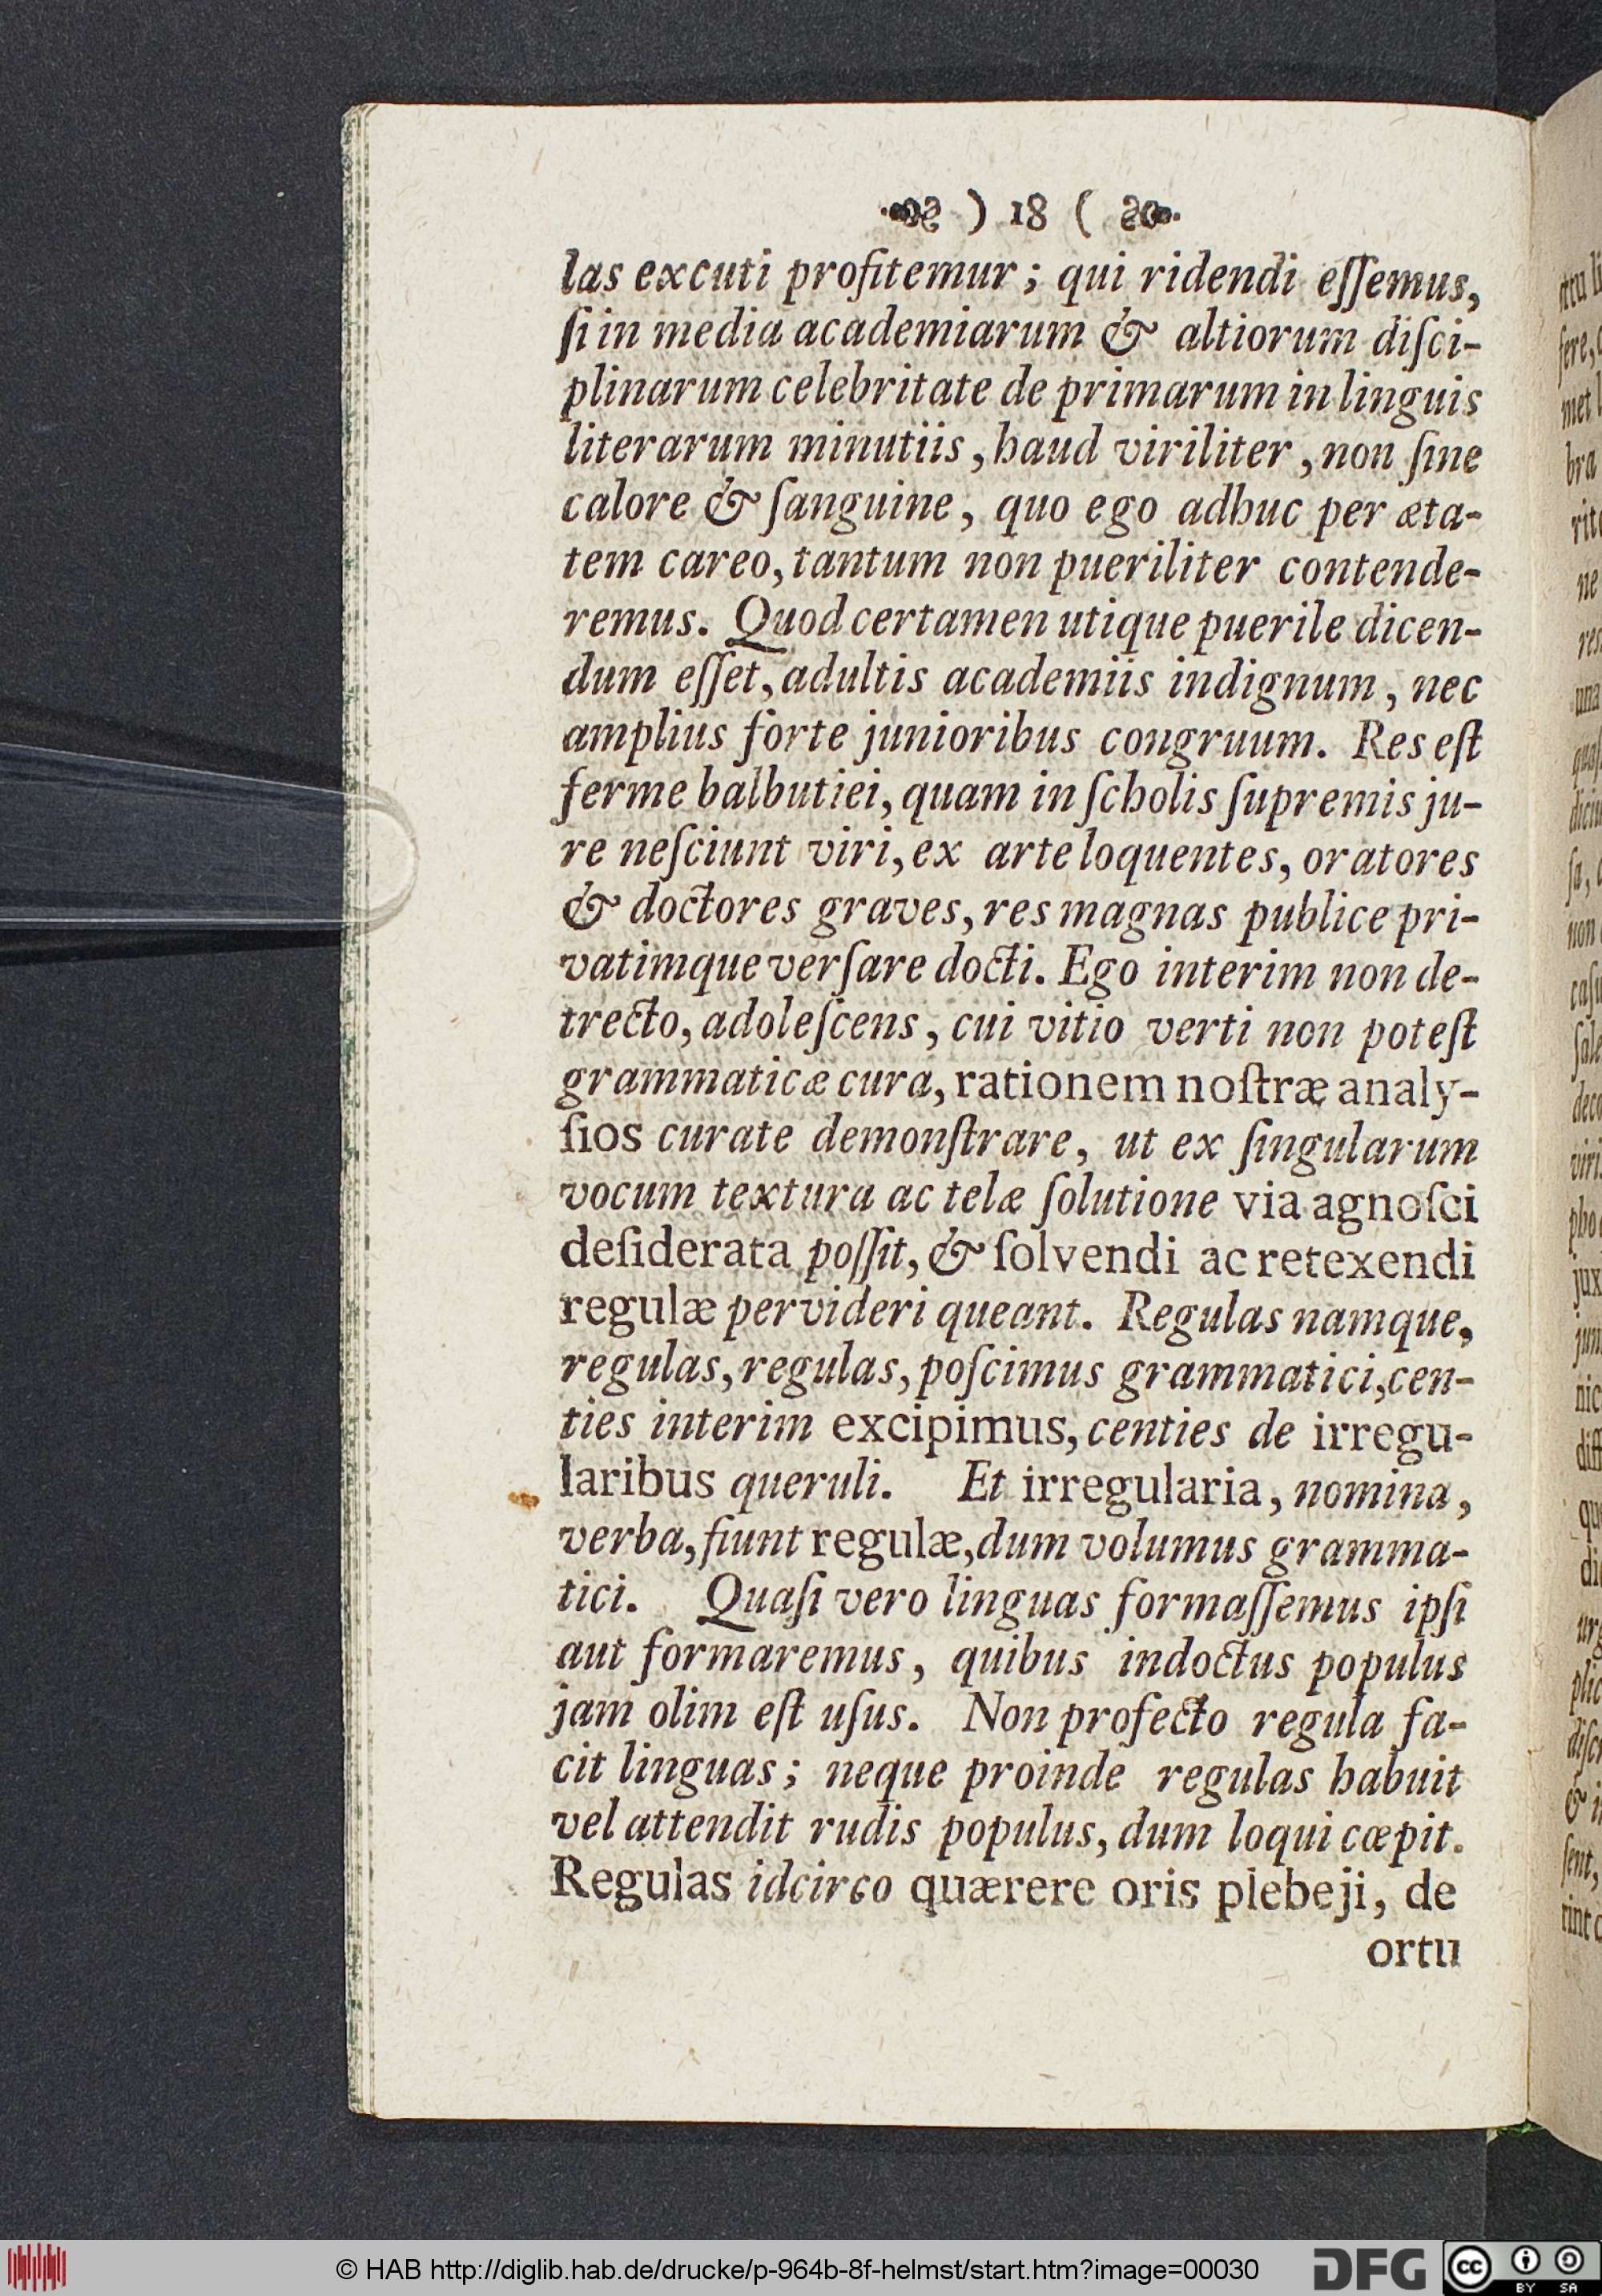 ) 18 (
las excuti profitemur; qui ridendi eſſemus,
ſi in media academiarum & altiorum diſci-
plinarum celebritate de primarum in linguis
literarum minutiis, haud viriliter, non ſine
calore & ſanguine, quo ego adhuc per æta-
tem careo, tantum non pueriliter contende-
remus. Quod certamen utique puerile dicen-
dum eſſet, adultis academiis indignum, nec
amplius forte junioribus congruum. Res eſt
ferme balbutiei, quam in ſcholis ſupremis ju-
re neſciunt viri, ex arte loquentes, oratores
& doctores graves, res magnas publice pri-
vatimque verſare docti. Ego interim non de-
trecto, adoleſcens, cui vitio verti non poteſt
grammaticæ cura, rationem noſtræ analy-
ſios curate demonſtrare, ut ex ſingularum
vocum textura ac telæ ſolutione via agnoſci
deſiderata poſſit, & ſolvendi ac retexendi
regulæ pervideri queant. Regulas namque,
regulas, regulas, poſcimus grammatici, cen-
ties interim excipimus, centies de irregu-
laribus queruli. Et irregularia, nomina,
verba, fiunt regulæ, dum volumus gramma-
tici. Quaſi vero linguas formaſſemus ipſi
aut formaremus, quibus indoctus populus
jam olim eſt uſus. Non profecto regula fa-
cit linguas; neque proinde regulas habuit
vel attendit rudis populus, dum loqui cœpit.
Regulas idcirco quærere oris plebeji, de
ortu
© HAB http://diglib.hab.de/drucke/p-964b-8f-helmst/start.htm?image=00030
DFG
cc
BY SA